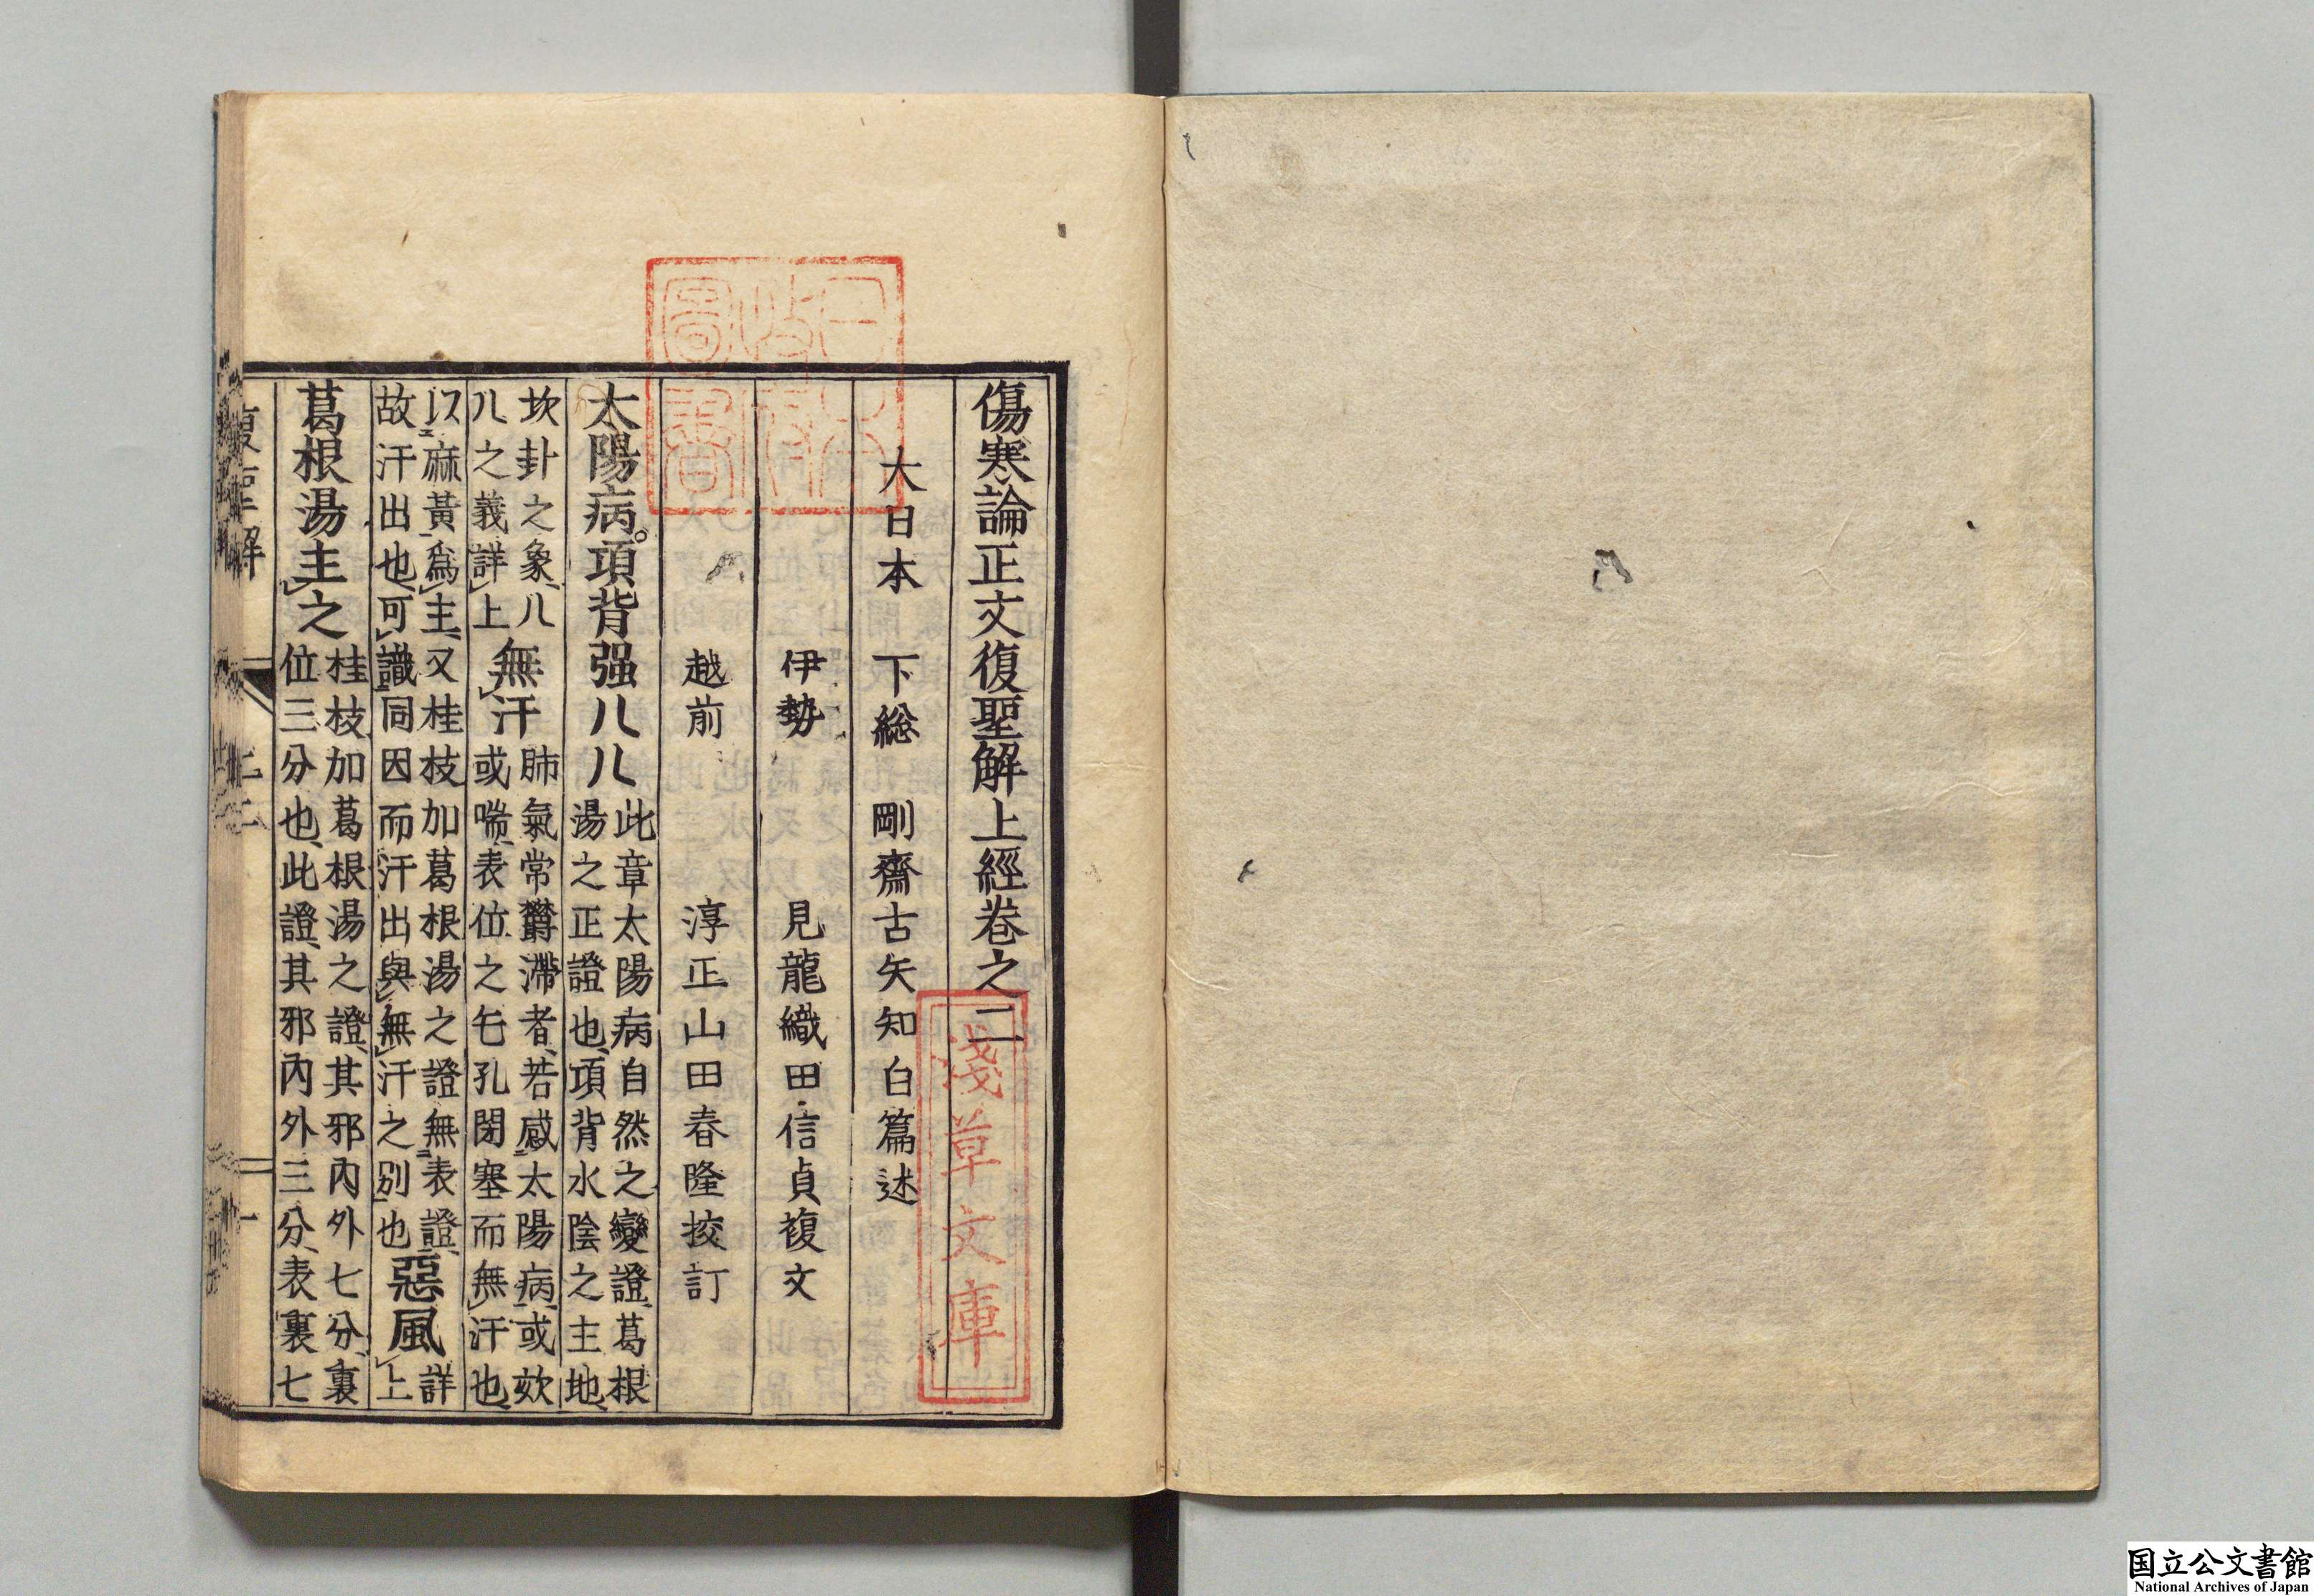 傷寒論正文復聖解上經卷之二
大日本 下總 剛齋古矢知白篇述
伊勢 見龍織田信貞複文
越前 淳正山田春隆挍訂
太陽病項背强八八
此章太陽病自然之變證葛根
湯之正證也項背水陰之主地
坎卦之象八
八之義詳上
無汗
肺氣常欝滯者若感太陽病或欬
或喘表位之毛孔閉塞而無汗也
以麻黃爲主又桂枝加葛根湯之證無表證
故汗出也可識同因而汗出與無汗之別也
惡風
詳
上
葛根湯主之
桂枝加葛根湯之證其邪內外七分裏
位三分也此證其邪內外三分表裏七
復聖解
上二
一
淺草文庫
日本
政府
圖書
国立公文書館
National Archives of Japan